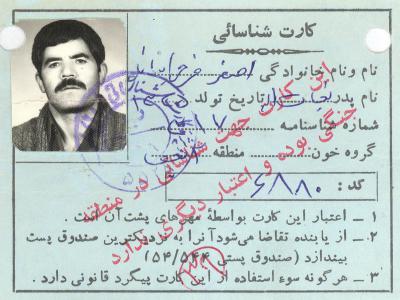 کارت شناسائی
نام و نام خانوادگی اصغر
نام پدر تاریخ تولد
شماره شناسنامه ۱۷
گروه خون: منطقه
کد : ۶۸۸۰
این کارت جهت شناسائی در منطقه
جنگی بوده و اعتبار دیگری ندارد
۱ ــ اعتبار این کارت بواسطهٔ مهرهای پشت آن است .
۲ ــ از یابنده تقاضا می‌شود آنرا به نزدیکترین صندوق پست
بیندازد (صندوق پستی ۵۴/۵۴۴)
۳ ــ هرگونه سوء استفاده از این کارت پیگرد قانونی دارد .